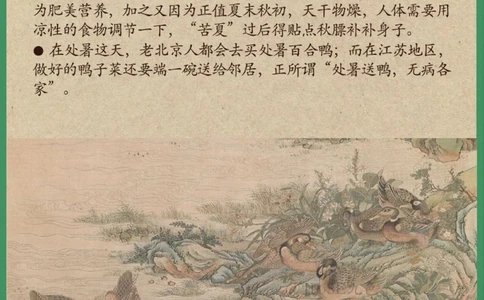 为肥美营养，加之又因为正值夏末秋初，天干物燥，人体需要用
凉性的食物调节一下，“苦夏”过后得贴点秋膘补补身子。
● 在处暑这天，老北京人都会去买处暑百合鸭；而在江苏地区，
做好的鸭子菜还要端一碗送给邻居，正所谓“处暑送鸭，无病各
家”。